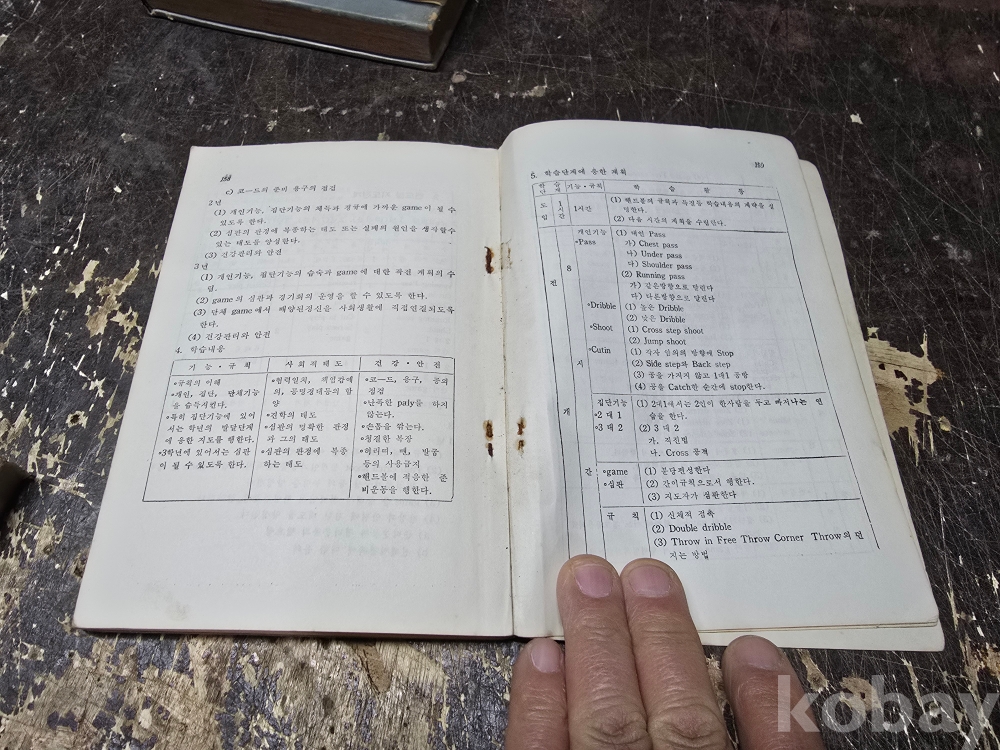 188
c) 코—드의 준비 용구의 점검
2년
(1) 개인기능, 집단기능의 체득과 정규에 가까운 game이 될 수
있도록 한다.
(2) 심판의 판정에 복종하는 태도 또는 실패의 원인을 생각할수
있는 태도를 양성한다.
(3) 건강관리와 안전
3년
(1) 개인기능, 집단기능의 습숙과 game에 대한 작전 계획의 수
립.
(2) game의 심판과 경기회의 운영을 할 수 있도록 한다.
(3) 단체 game에서 해양된정신을 사회생활에 직접연결되도록
한다.
(4) 건강관리와 안전
4. 학습내용
기능·규칙 사회적태도 건강·안전
∘규칙의 이해
∘개인, 집단, 단체기능
을 습득시킨다.
∘특히 집단기능에 있어
서는 학년의 발달단계
에 응한 지도를 행한다.
∘3학년에 있어서는 심판
이 될 수 있도록 한다.
∘협력일치, 책임감에
의, 공명정대등의 함
양
∘견학의 태도
∘심판의 명확한 판정
과 그의 태도
∘심판의 판정에 복종
하는 태도
∘코—드, 용구, 등의
점검
∘난폭한 paly를 하지
않는다.
∘손톱을 깎는다.
∘청결한 복장
∘히러피, 맨, 발굽
등의 사용금지
∘핸드볼에 적응한 준
비운동을 행한다.
189
5. 학습단계에 응한 계획
학습단계 기능·규칙 학습활동
도입 1시간 1시간
(1) 핸드볼의 규칙과 특징등 학습내용의 계략을 설
명한다.
(2) 다음 시간의 계획을 수립한다.
전개
8시간
개인기능
∘Pass
(1) 대인 Pass
가) Chest pass
나) Under pass
다) Shoulder pass
(2) Running pass
가) 같은방향으로 달린다
다) 다른방향으로 달린다
∘Dribble (1) 높은 Dribble
(2) 낮은 Dribble
∘Shoot (1) Cross step shoot
(2) Jump shoot
∘Cutin (1) 각자 임의의 방향에 Stop
(2) Side step과 Back step
(3) 공을 가지지 않고 1대1 공방
(4) 공을 Catch한 순간에 stop한다.
집단기능
∘2대 1
∘3대 2
(1) 2대1에서는 2인이 한사람을 두고 빠져나는 연
습을 한다.
(2) 3대 2
가. 직진법
나. Cross 공격
∘game
∘심판
(1) 분당편성한다
(2) 간이규칙으로서 행한다.
(3) 지도자가 심판한다
규칙 (1) 신체적 접촉
(2) Double dribble
(3) Throw in Free Throw Corner Throw의 던
지는 방법
kobay